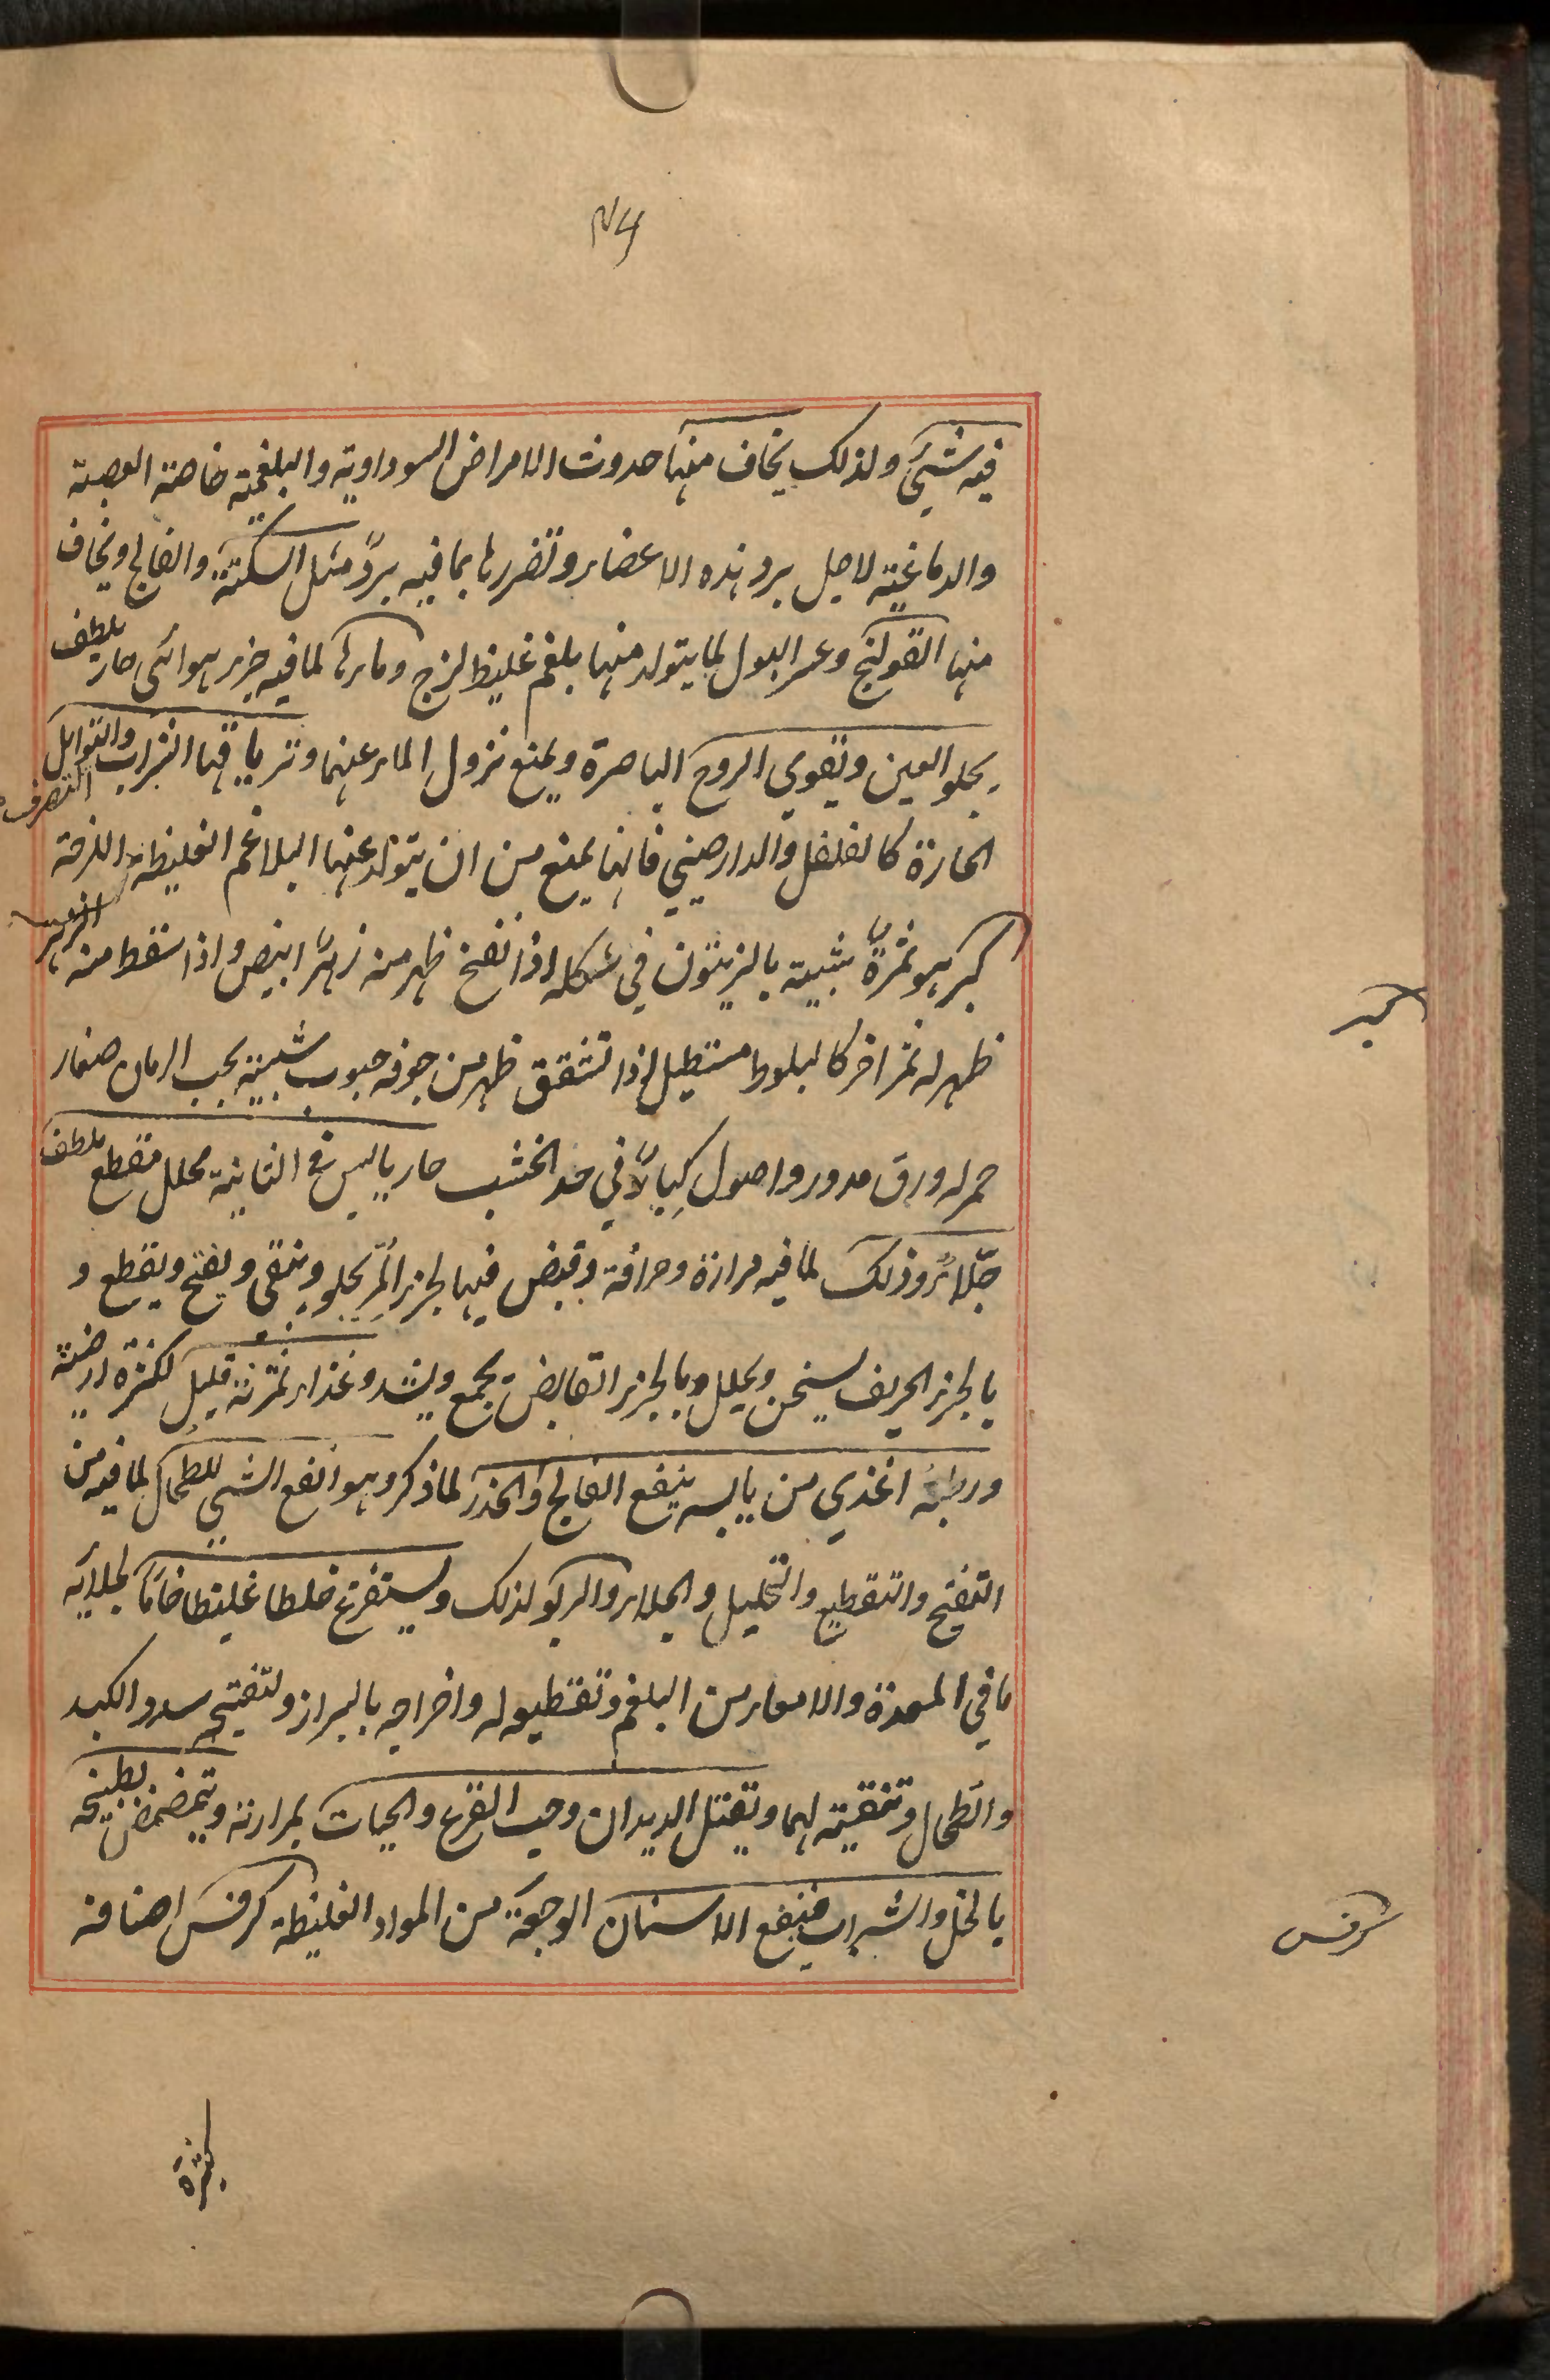 فيه شيئ ولذلك يخاف منها حدوث الامراض السوداوية والبلغمية خاصة العصبية
والدماغية لاجل برد هذه الاعضاء وتضررها بما فيه برد مثل السكتة والفالج ويخاف
منها القولنج وعسر البول لما يتولد منها بلغم غليظ لزج وماءها لما فيه جزء هوائي حار يلطف
يجلو العين ويقوي الروح الباصرة ويمنع نزول الماء عنها وترياقها الشراب والتوابل
الحارة كالفلفل والدارصيني فانها يمنع من ان يتولد عنها البلاغم الغليظة اللزجة
كبر هو ثمرة شبيه بالزيتون في شكله اذا تفتح ظهر منه زهر ابيض واذا سقط منه الزهر
ظهر له ثمر اخر كالبلوط مستطيل اذا تشقق ظهر من جوفه حبوب شبيهة بحب الرمان صغار
حمر له ورق مدور واصول في حد الخشب حار يابس في الثانية محلل مقطع ملطف
جلاء وذلك لما فيه مرارة وحرافة وقبض فبالجزء المر يجلو وينقي ويفتح ويقطع و
بالجزء الحريف يسخن ويحلل وبالجزء القابض يجمع ويشد وغذاء ثمرته قليل لكثرة ارضيته
ورطبه اغذي من يابسه ينفع الفالج والخدر لما ذكر وهو انفع الشيئ للطحال لما فيه من
التفتيح والتقطيع والتحليل والجلاء والربو لذلك ويستفرغ خلطا غليظا خاما لجلائه
ما في المعدة والامعاء من البلغم وتقطيعه له واخراجه بالبراز ولتفتيحه سدد الكبد
والطحال وتنقيته لهما ويقتل الديدان وحب القرع والحيات بمرارته ويتمضمض بطبيخه
بالخل والشراب فينفع الاسنان الوجعة من المواد الغليظة كرفس اصنافه
كبر
كرفس
كثيرة